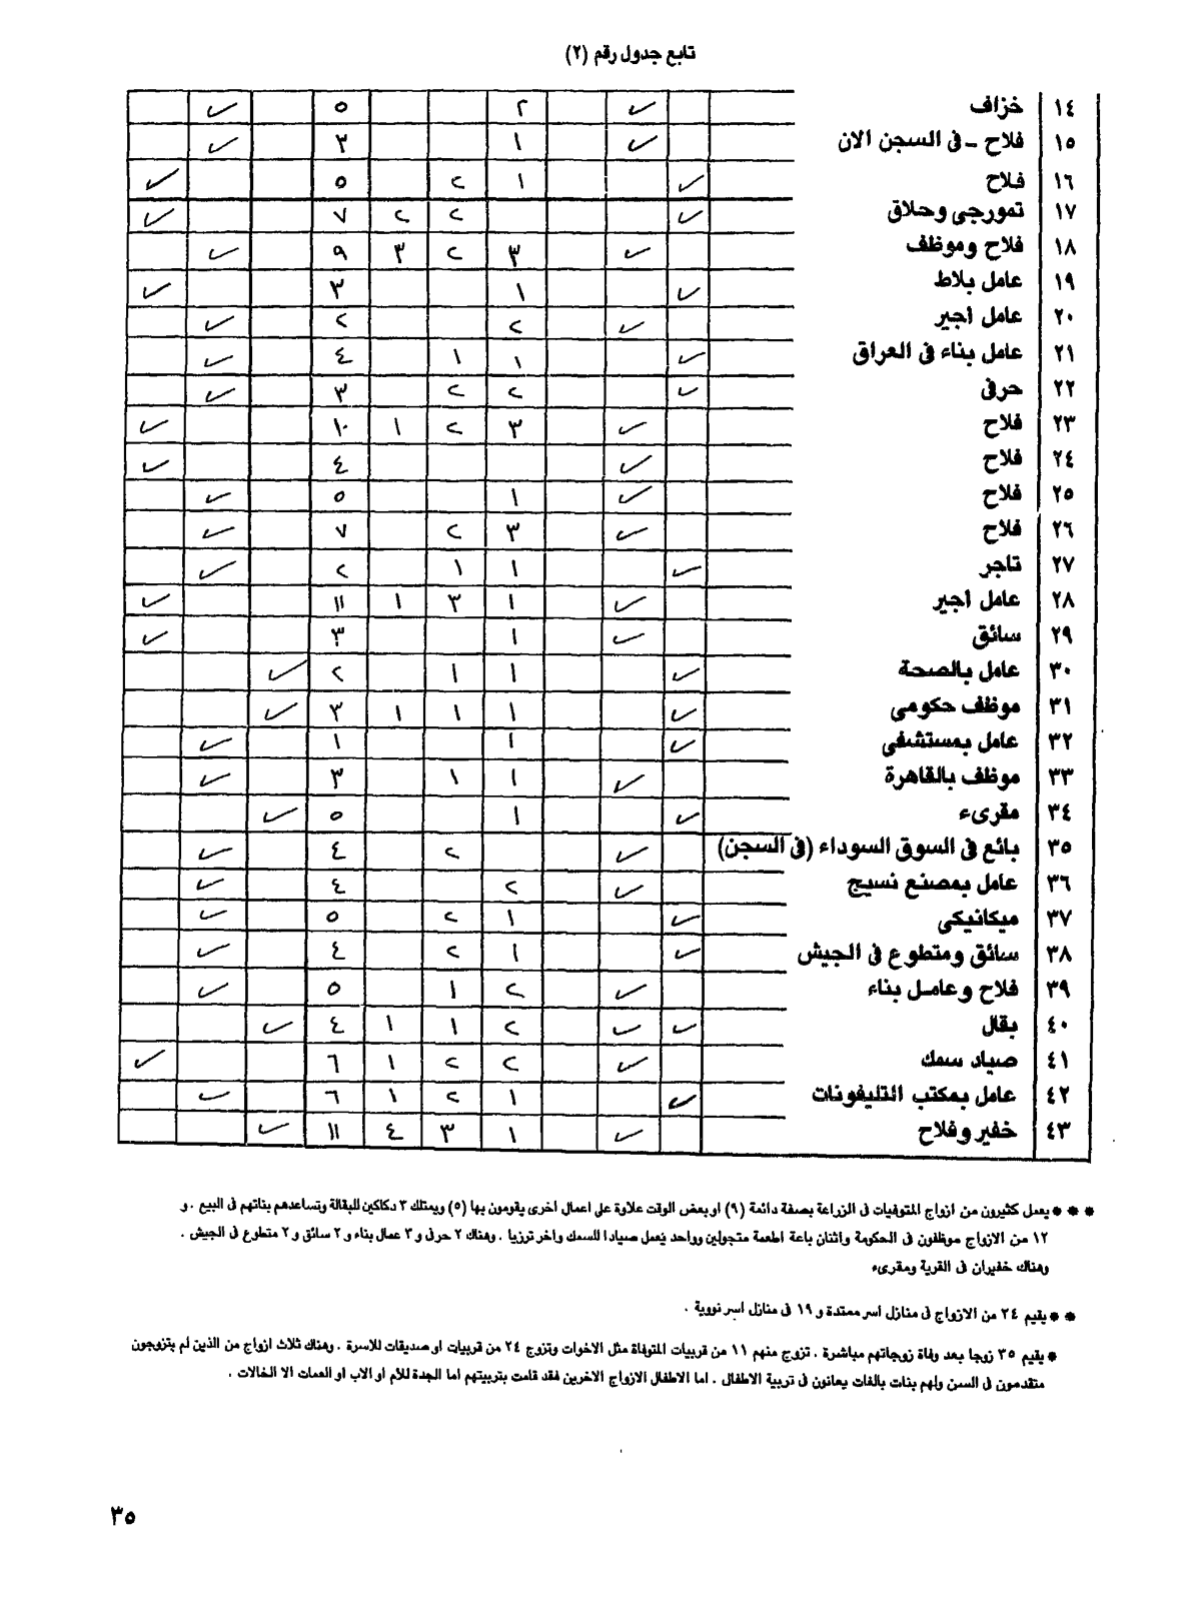 تابع جدول رقم (٢)
١٤ خزاف ✓ ٢ ٥ ✓
١٥ فلاح – فى السجن الان ✓ ١ ٣ ✓
١٦ فلاح ✓ ١ ٢ ٥ ✓
١٧ تمورجى وحلاق ✓ ٢ ٢ ٧ ✓
١٨ فلاح وموظف ✓ ٣ ٢ ٣ ٩ ✓
١٩ عامل بلاط ✓ ١ ٣ ✓
٢٠ عامل اجير ✓ ٢ ٢ ✓
٢١ عامل بناء فى العراق ✓ ١ ١ ٤ ✓
٢٢ حرفى ✓ ٢ ٢ ٣ ✓
٢٣ فلاح ✓ ٣ ٢ ١ ١٠ ✓
٢٤ فلاح ✓ ٤ ✓
٢٥ فلاح ✓ ١ ٥ ✓
٢٦ فلاح ✓ ٣ ٢ ٧ ✓
٢٧ تاجر ✓ ١ ١ ٢ ✓
٢٨ عامل اجير ✓ ١ ٣ ١ ١١ ✓
٢٩ سائق ✓ ١ ٣ ✓
٣٠ عامل بالصحة ✓ ١ ١ ٢ ✓
٣١ موظف حكومى ✓ ١ ١ ١ ٣ ✓
٣٢ عامل بمستشفى ✓ ١ ١ ✓
٣٣ موظف بالقاهرة ✓ ١ ١ ٣ ✓
٣٤ مقرىء ✓ ١ ٥ ✓
٣٥ بائع فى السوق السوداء (فى السجن) ✓ ٢ ٤ ✓
٣٦ عامل بمصنع نسيج ✓ ٢ ٤ ✓
٣٧ ميكانيكى ✓ ١ ٢ ٥ ✓
٣٨ سائق ومتطوع فى الجيش ✓ ١ ٢ ٤ ✓
٣٩ فلاح وعامل بناء ✓ ٢ ١ ٥ ✓
٤٠ بقال ✓ ✓ ٢ ١ ١ ٤ ✓
٤١ صياد سمك ✓ ٢ ٢ ١ ٦ ✓
٤٢ عامل بمكتب التليفونات ✓ ١ ٢ ١ ٦ ✓
٤٣ خفير وفلاح ✓ ١ ٣ ٤ ١١ ✓
* * * يعمل كثيرون من ازواج المتوفيات فى الزراعة بصفة دائمة (٩) او بعض الوقت علاوة على اعمال اخرى يقومون بها (٥) ويمتلك ٣ دكاكين للبقالة وتساعدهم بناتهم فى البيع . و
١٢ من الازواج موظفون فى الحكومة واثنان باعة اطعمة متجولين وواحد يعمل صيادا للسمك واخر ترزيا . وهناك ٢ حرفى و ٣ عمال بناء و ٢ سائق و ٢ متطوع فى الجيش .
وهناك خفيران فى القرية ومقرىء
* * يقيم ٢٤ من الازواج فى منازل اسر ممتدة و ١٩ فى منازل اسر نووية .
* يقيم ٣٥ زوجا بعد وفاة زوجاتهم مباشرة . تزوج منهم ١١ من قريبات المتوفاة مثل الاخوات وتزوج ٢٤ من قريبات او صديقات للاسرة . وهناك ثلاث ازواج من الذين لم يتزوجون
متقدمون فى السن ولهم بنات بالغات يعانون فى تربية الاطفال . اما الاطفال الازواج الاخرين فقد قامت بتربيتهم اما الجدة للأم او الاب او العمات الا الخالات .
٣٥